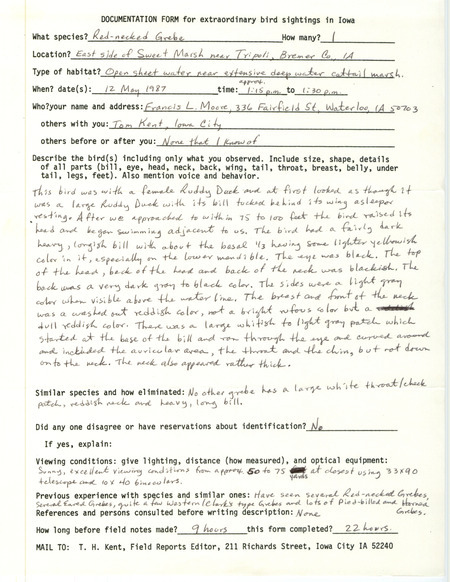 DOCUMENTATION FORM for extraordinary bird sightings in Iowa
What species? Red-necked Grebe How many? 1
Location? East side of Sweet Marsh near Tripoli, Bremer Co., IA
Type of habitat? Open sheet water near extensive deep water cattail marsh.
When? date(s): 12 May 1987 time: approx. 1:15 p.m. to 1:30 p.m.
Who? your name and address: Francis L. Moore, 336 Fairfield St, Waterloo, IA 50703
others with you: Tom Kent, Iowa City
others before or after you: None that I know of
Describe the bird(s) including only what you observed. Include size, shape, details
of all parts (bill, eye, head, neck, back, wing, tail, throat, breast, belly, under
tail, legs, feet). Also mention voice and behavior.
This bird was with a female Ruddy Duck and at first looked as though it
was a large Ruddy Duck with its bill tucked behind its wing asleep or
resting. After we approached to within 75 to 100 feet the bird raised its
head and began swimming adjacent to us. The bird had a fairly dark
heavy, longish bill with about the basal 1/3 having some lighter yellowish
color in it, especially on the lower mandible. The eye was black. The top
of the head, back of the head and back of the neck was blackish. The
back was a very dark gray to black color. The sides were a light gray
color when visible above the water line. The breast and front of the neck
was a washed out reddish color, not a bright rufous color but a
dull reddish color. There was a large whitish to light gray patch which
started at the base of the bill and ran through the eye and curved around
and included the auricular area, the throat and the chin, but not down
onto the neck. The neck also appeared rather thick.
Similar species and how eliminated: No other grebe has a large white throat/cheek
patch, reddish neck and heavy, long bill.
Did any one disagree or have reservations about identification? No
If yes, explain:
Viewing conditions: give lighting, distance (how measured), and optical equipment:
Sunny, excellent viewing conditions from approx. 50 to 75 yards at closest using 33x90
telescope and 10 x 40 binoculars.
Previous experience with species and similar ones: Have seen several Red-necked Grebes,
several Eared Grebes, quite a few Western/Clark's type Grebes and lots of Pied-billed and Horned
Grebes.
References and persons consulted before writing description: None
How long before field notes made? 9 hours this form completed? 22 hours.
MAIL TO: T. H. Kent, Field Reports Editor, 211 Richards Street, Iowa City IA 52240